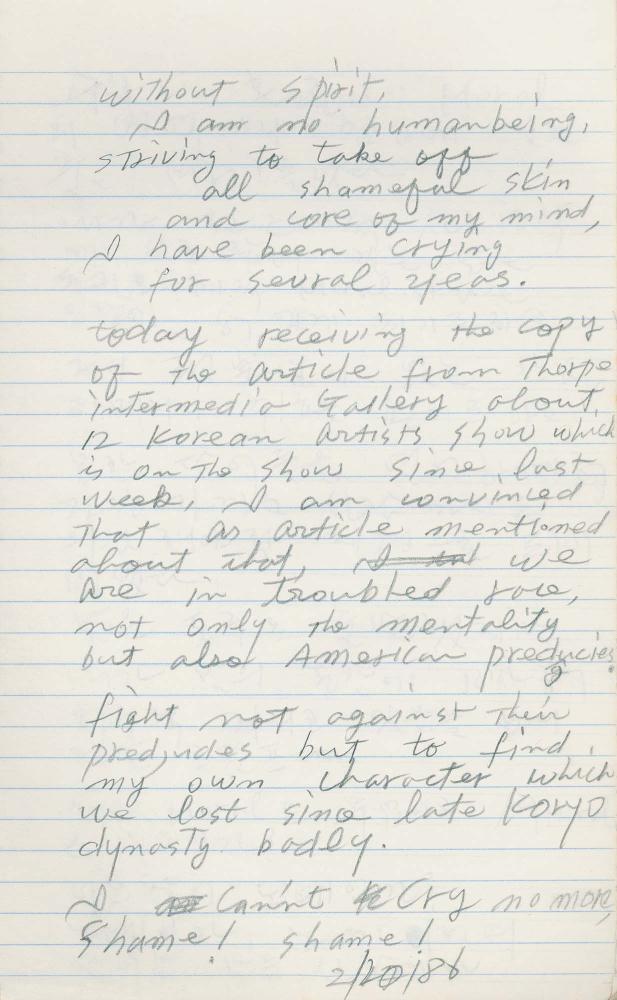 without spirit,
I am no humanbeing,
striving to take off
all shameful skin
and core of my mind,
I have been crying
for sevral yeas.
today receiving the copy
of the article from Thorpe
intermedia Gallery about
12 Korean artists show which
is on the show since last
week, I am convinced
That as article mentioned
about that, we
are in troubled race,
not only the mentality
but also American preducies.
fight not against their
predjudies but to find
my own character which
we lost since late Koryo
dynasty badly.
I cann't Cry no more,
Shame! shame!
2/20/86